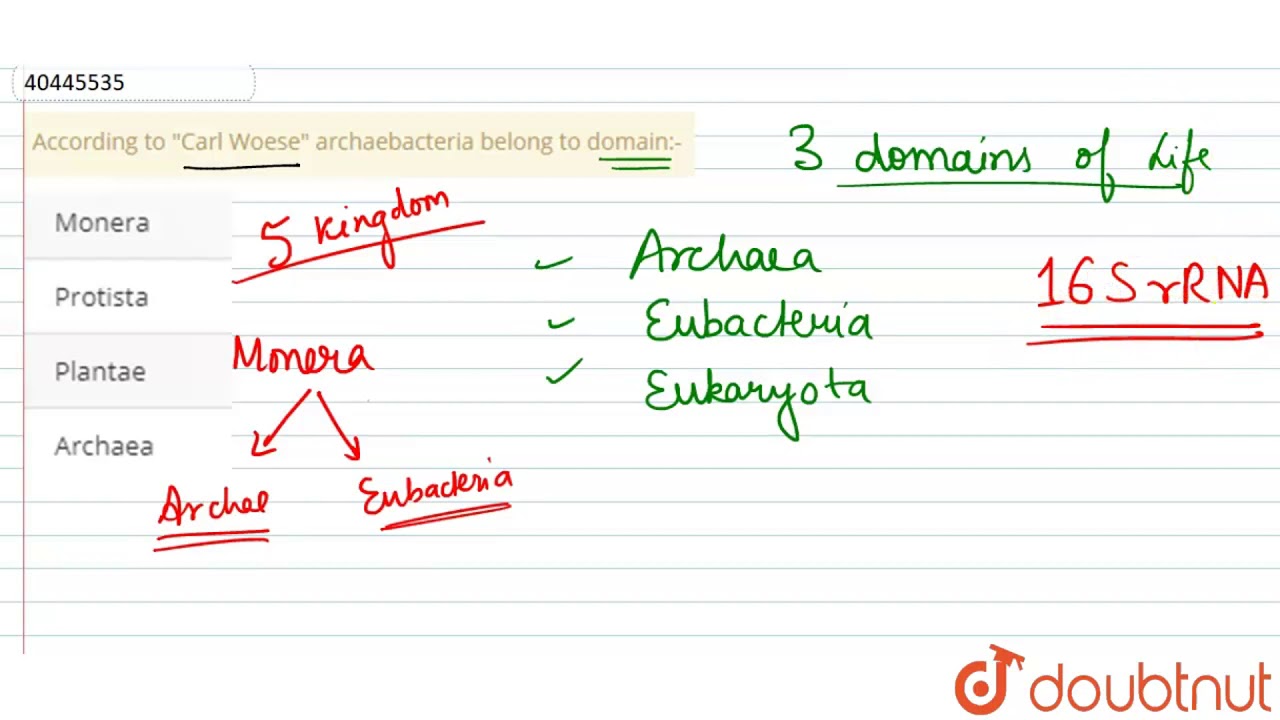 40445535
According to "Carl Woese" archaebacteria belong to domain:-
3 domains of Life
Monera
5 Kingdom
Archaea
16 S rRNA
Protista
Eubacteria
Monera
Plantae
Eukaryota
Archaea
Archae
Eubacteria
doubtnut